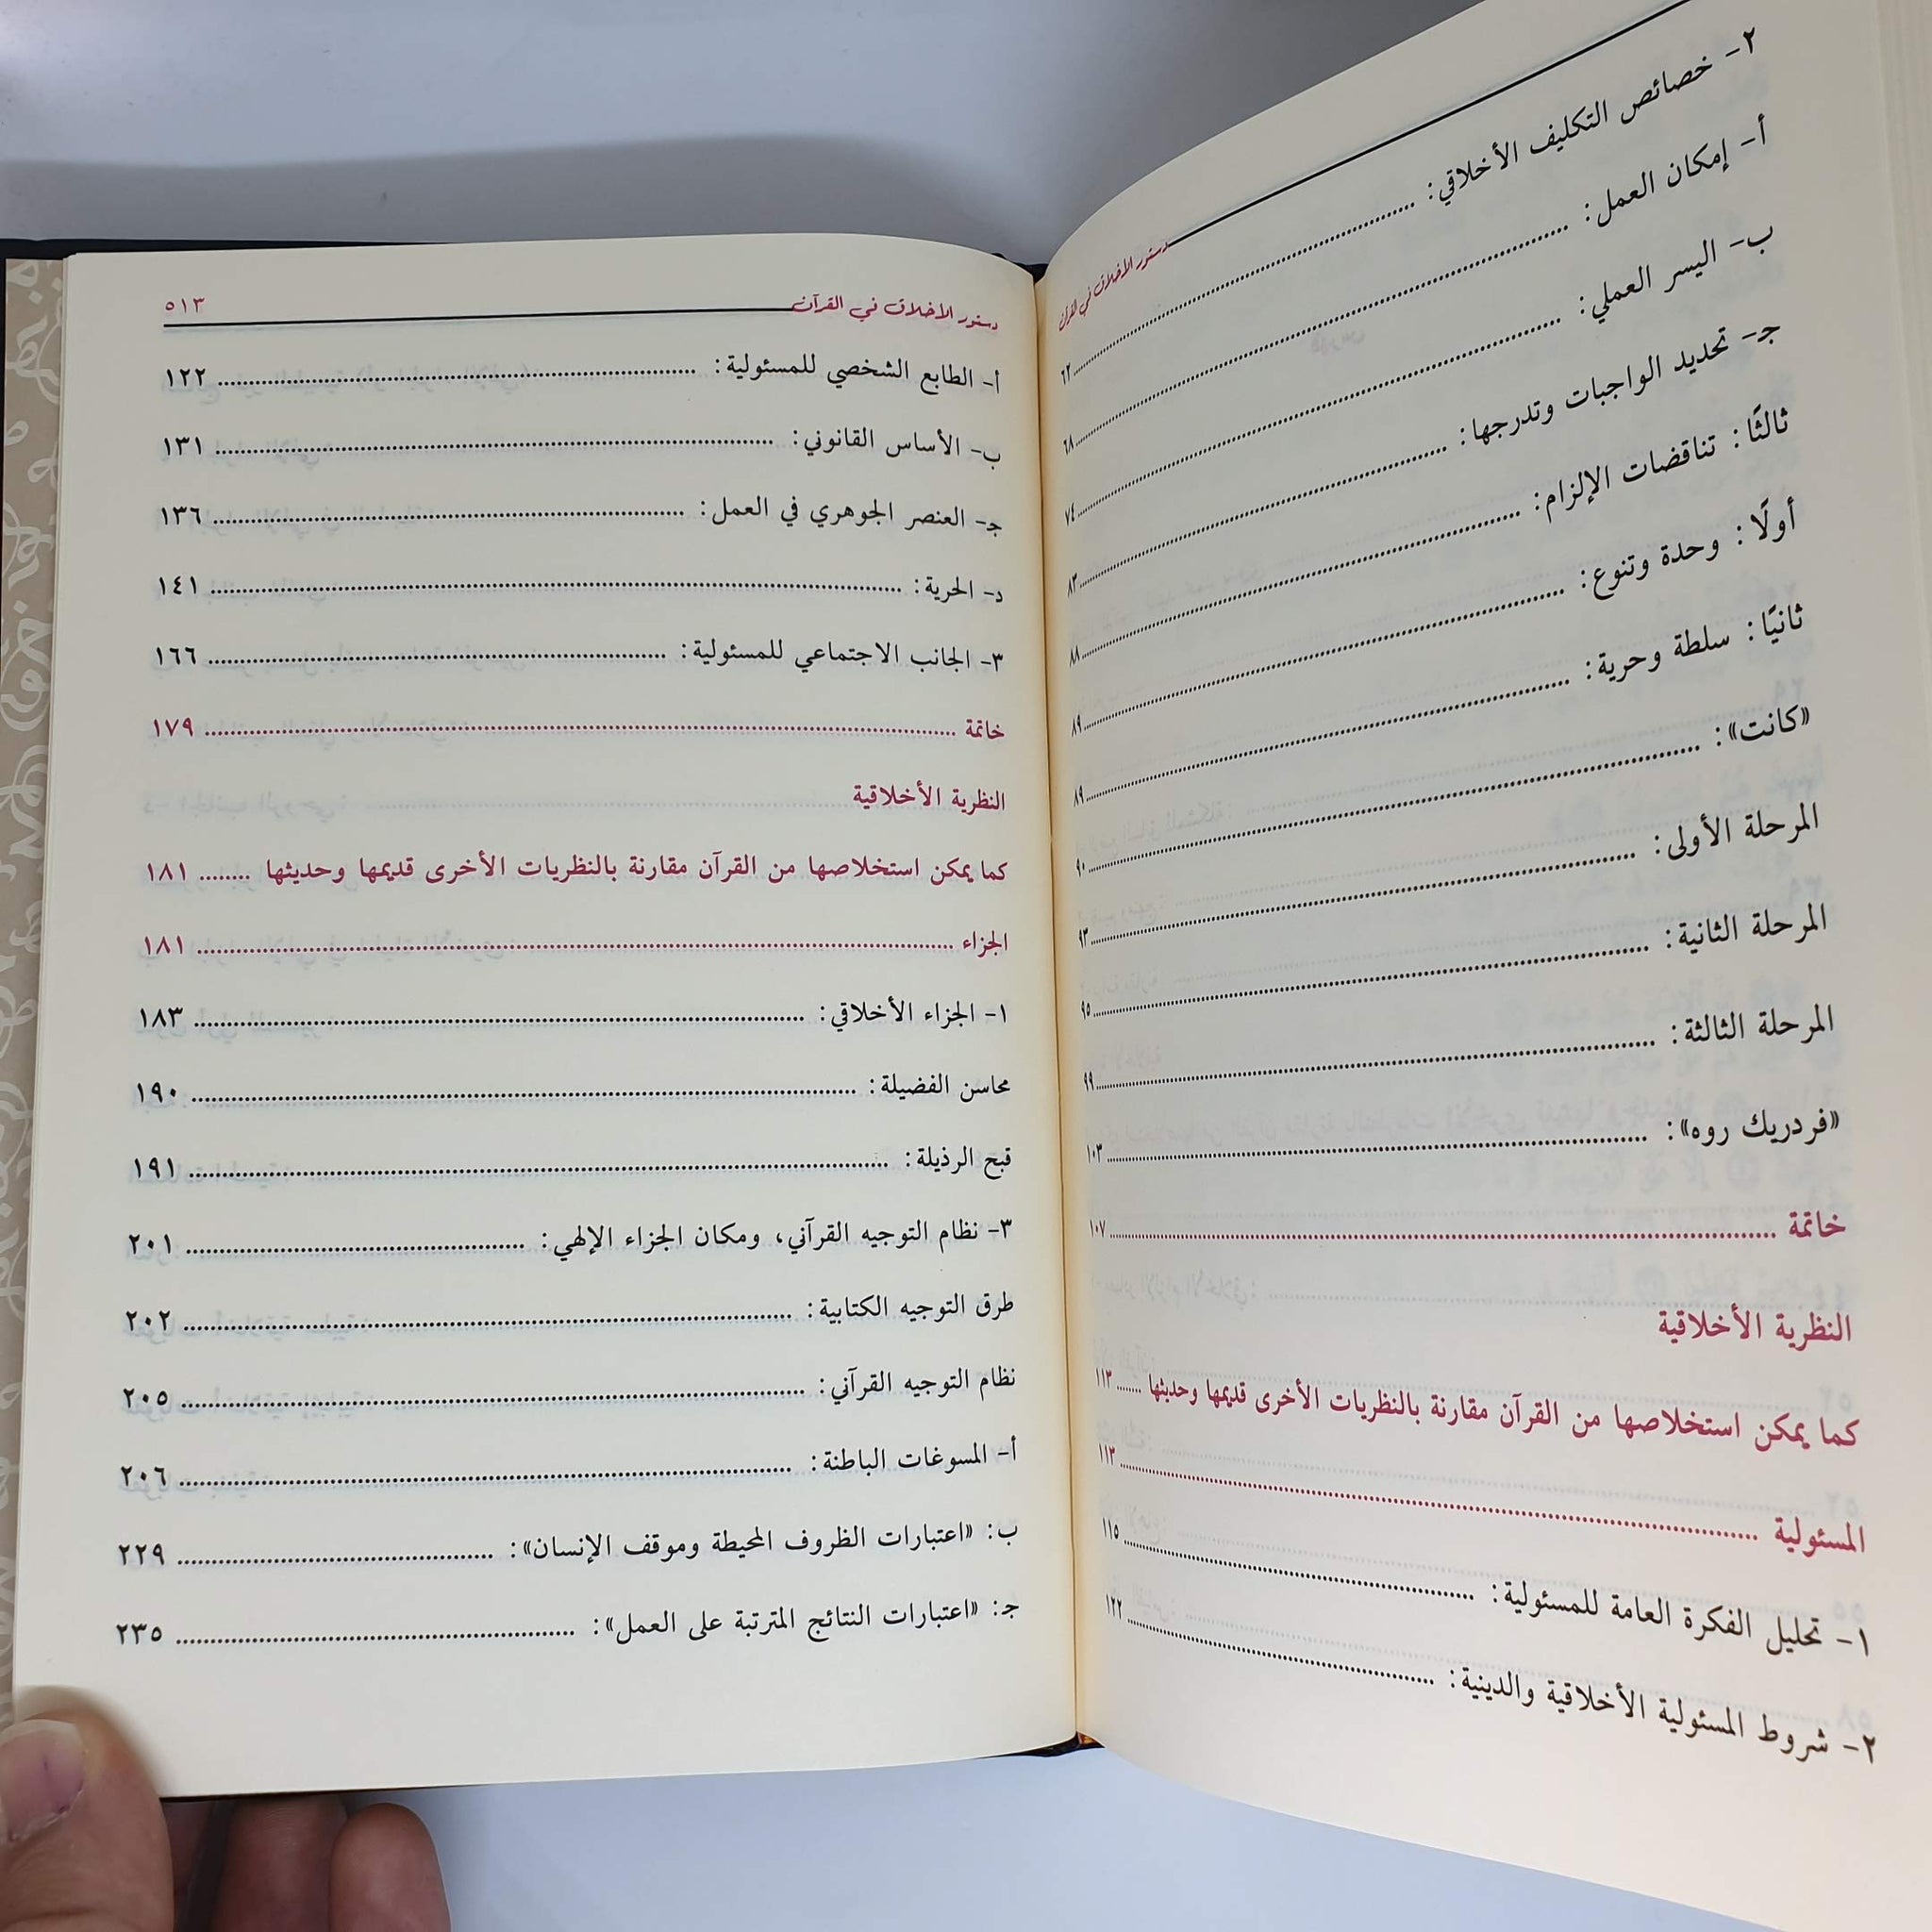 دستور الأخلاق في القرآن
٢- خصائص التكليف الأخلاقي: ........ ٦٢
أ- إمكان العمل: ........ ٦٨
ب- اليسر العملي: ........ ٧٤
جـ- تحديد الواجبات وتدرجها: ........ ٨٣
ثالثًا: تناقضات الإلزام: ........ ٨٨
أولًا: وحدة وتنوع: ........ ٨٩
ثانيًا: سلطة وحرية: ........ ٨٩
«كانت»: ........ ٩٠
المرحلة الأولى: ........ ٩٣
المرحلة الثانية: ........ ٩٥
المرحلة الثالثة: ........ ٩٩
«فردريك روه»: ........ ١٠٣
خاتمة ........ ١٠٧
النظرية الأخلاقية
كما يمكن استخلاصها من القرآن مقارنة بالنظريات الأخرى قديمها وحديثها ........ ١١٣
المسئولية ........ ١١٣
١- تحليل الفكرة العامة للمسئولية: ........ ١١٥
٢- شروط المسئولية الأخلاقية والدينية: ........ ١٢٢
دستور الأخلاق في القرآن ٥١٣
أ- الطابع الشخصي للمسئولية: ........ ١٢٢
ب- الأساس القانوني: ........ ١٣١
جـ- العنصر الجوهري في العمل: ........ ١٣٦
د- الحرية: ........ ١٤١
٣- الجانب الاجتماعي للمسئولية: ........ ١٦٦
خاتمة ........ ١٧٩
النظرية الأخلاقية
كما يمكن استخلاصها من القرآن مقارنة بالنظريات الأخرى قديمها وحديثها ........ ١٨١
الجزاء ........ ١٨١
١- الجزاء الأخلاقي: ........ ١٨٣
محاسن الفضيلة: ........ ١٩٠
قبح الرذيلة: ........ ١٩١
٣- نظام التوجيه القرآني، ومكان الجزاء الإلهي: ........ ٢٠١
طرق التوجيه الكتابية: ........ ٢٠٢
نظام التوجيه القرآني: ........ ٢٠٥
أ- المسوغات الباطنة: ........ ٢٠٦
ب: «اعتبارات الظروف المحيطة وموقف الإنسان»: ........ ٢٢٩
جـ: «اعتبارات النتائج المترتبة على العمل»: ........ ٢٣٥